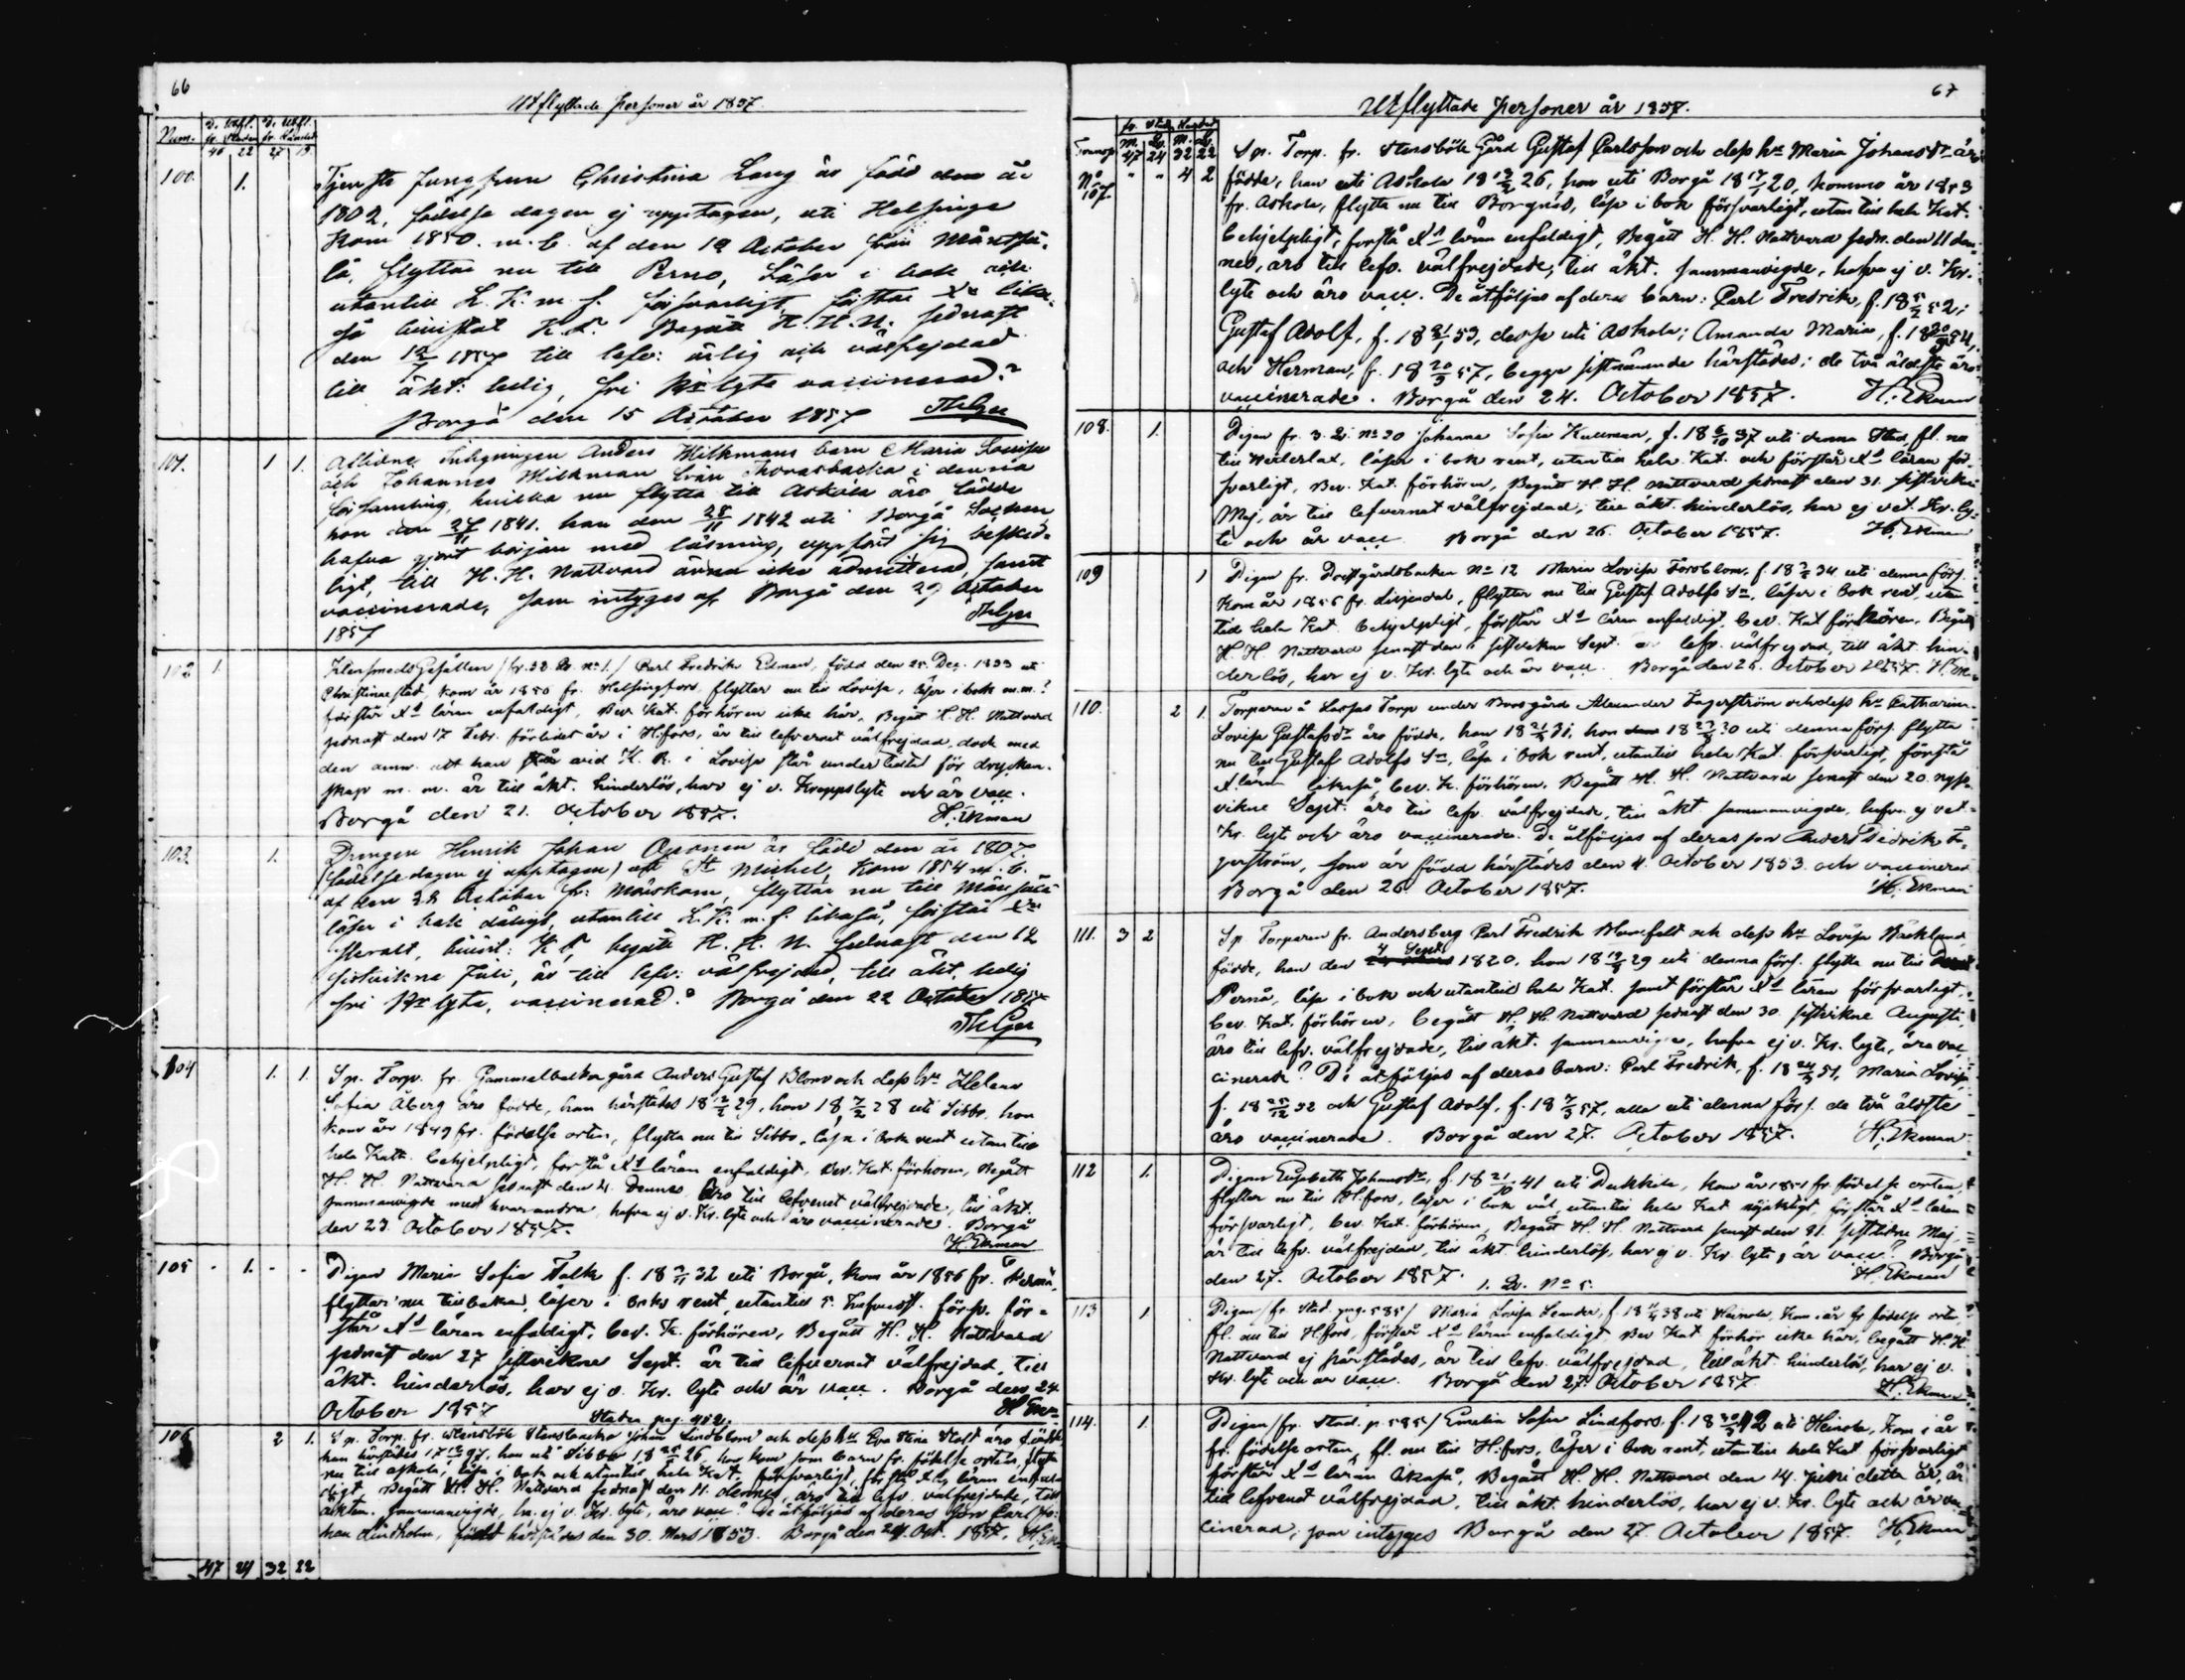 66
Utflyttade Personer år 1857.
Num. D. Utfl. fr. Staden D. Utfl. fr. Häradet
46 22 27 19
100. 1. Tjenste Jungfrun Christina Lang är född den år
1802, födelse dagen ej upptagen, uti Helsinge
kom 1850. m. b. af den 19 October från Mäntsä-
lä, flyttar nu till Perno, Läser i bok och
utantill L. K. m. f. försvarligt, förstår Xn lika-
så bevistat K. F. Begått H. H. N. sednast
den 12/7 1857 till lefv: ärlig och välfrejdad
till äkt: ledig, fri Kr lyte vaccinerad?
Borgå den 15 October 1857
101. 1 1. Aflidne Inhysingen Anders Milkmans barn Maria Lovisa
och Johannes Milkman från Thorasbacka i denna
församling, hvilka nu flytta till Askola äro födde
hon den 27/11 1841. han den 28/11 1842 uti Borgå Socken
hafva gjort början med läsning, uppfört sig beskéd-
ligt, till H. H. Nattvard ännu icke admitterad, samt
vaccinerade, som intygas af Borgå den 20 October
1857
102 1. Klensmeds Gesällen /fr. 32 Qv. No 1./ Carl Fredrik Edman, född den 25 Dec. 1833 uti
Christinæstad, kom år 1850 fr. Helsingfors, flyttar nu till Lovisa, läser i bok m.m.?
förstår Xs läran enfaldigt, Bev. Kat. förhören icke här, Begått H. H. Nattvard
sednast den 17 Febr. förlidet år i H:fors, är till lefvernet välfrejdad, dock med
den anm. att han vid K. R. i Lovisa står under tilltal för drycken-
skap m. m. är till äkt. hinderlös, har ej v. Kroppslyte och är vacc.
Borgå den 21. October 1857. H. Ekman
103. 1. Drengen Henrik Johan Oponen är född den år 1807.
(födelse dagen ej upptagen) uti St Michel, kom 1854 m. b.
af den 28 October fr: Mörskom, flyttar nu till Mäntsälä
läser i bok dåligt, utantill L. K. m. f. likaså, förstår Xn
svaralt, bevist: K F, begått H. H. N. sednast den 12
sistvikne Juli, är till lefv: välfrejdad, till äkt. ledig
fri Kr lyte, vaccinerad? Borgå den 22 October 1857
104 1. 1. Sp. Torp. fr. Gammelbacka gård Anders Gustaf Blom och dess hu Helena
Sofia Åberg äro födde, han härstädes 18 12/2 29, hon 18 7/2 28 uti Sibbo, hon
kom år 1849 fr. födelse orten, flytta nu till Sibbo, läsa i bok rent utantill
hela Kat. behjelpligt, förstå Xs läran enfaldigt, Bev. Kat. förhören, Begått
H. H. Nattvard sednast den 4. dennes. Äro till lefvernet välfrejdade, till äkt.
sammanvigde med hvarandra, hafva ej v. Kr. lyte och äro vaccinerade. Borgå
den 23. October 1857. H. Ekman
105 - 1. - - Pigan Maria Sofia Falk f. 18 2/11 32 uti Borgå, kom år 1856 fr.
flyttar nu tillbaka, läser i bok rent, utantill 5. hufvudst. försv. för-
står Xs läran enfaldigt, bev. K. förhören, Begått H. H. Nattvard
sednast den 27 sistvikne Sept. är till lefvernet välfrejdad, till
äkt. hinderlös, har ej v. Kr. lyte och är vacc. Borgå den 24
October 1857
Staden pag. 452.
106 2 1. Sp. Torp. fr. Stensböle Stensbacka Johan Lindblom och dess hu Eva Stina Staff äro födde
han härstädes 17 12/ 97, hon uti Sibbo 18 25/ 26, hon kom som barn fr. födelse orten, flytta
nu till Askola, läsa i bok och utantill hela Kat. försvarligt, förstå Xs läran enfal-
digt, Begått H. H. Nattvard sednast den 11. dennes, äro till lefv. välfrejdade, till
äkten. sammanvigde, ha ej v. Kr. lyte, äro vacc? De åtföljas af deras son Carl Jo-
han Lindholm, född härstädes den 30. Mars 1853. Borgå den 24. Oct. 1857.
47 24 32 22
67
Utflyttade Personer år 1857.
fr. Stad. Härad
M. Q. M. Q.
Transp. 47 24 32 22 Sp. Torp. fr. Stensböle Gård Gustaf Carlsson och dess hu Maria Johansdr äro
No 107. " " 4 2 födde, han uti Askola 18 13/2 26, hon uti Borgå 18 17/1 20, kommo år 1853
fr. Askola, flytta nu till Borgnäs, läsa i bok försvarligt, utantill hela Kat.
behjelpligt, förstå Xs läran enfaldigt, Begått H. H. Nattvard sedn. den 11 den-
nes, äro till lefv. välfrejdade, till äkt. sammanvigde, hafva ej v. Kr.
lyte och äro vacc. De åtföljas af deras barn: Carl Fredrik, f. 18 5/2 52;
Gustaf Adolf, f. 18 21/1 53, desse uti Askola; Amanda Maria, f. 18 20/9 54,
och Herman, f. 18 20/3 57, begge sistnämnde härstädes; de två äldste äro
vaccinerade. Borgå den 24. October 1857. H. Ekman
108. 1. Pigan fr. 3. Q. No 20 Johanna Sofia Kullman, f. 18 6/10 37 uti denna Stad, fl. nu
till Wederlax, läser i bok rent, utantill hela Kat. och förstår Xs läran för-
svarligt, Bev. Kat. förhören, Begått H. H. Nattvard sednast den 31. sistvikne
Maj, är till lefvernet välfrejdad, till äkt. hinderlös, har ej vet. Kr. ly-
te och är vacc. Borgå den 26. October 1857. H. Ekman
109 1 Pigan fr. Prestgårdsbacken No 12 Maria Lovisa Forsblom, f. 18 3/2 34 uti denna förs.
kom år 1856 fr. Liljendal, flyttar nu till Gustaf Adolfs Sn, läser i bok rent, utan-
till hela Kat. behjelpligt, förstår Xs läran enfaldigt, bev. Kat förhören, Begått
H. H. Nattvard senast den 6 sistvikne Sept. lefv. välfrejdad, till äkt. hin-
derlös, har ej v. Kr. lyte och är vacc. Borgå den 26. October 1857.
110. 2 1. Torparen å Lassas Torp under Boosgård Alexander Fagerström och dess hu Catharina
Lovisa Gustafsdr äro födde, han 18 21/3 31, hon 18 23/3 30 uti denna förs. flytta
nu till Gustaf Adolfs Sn, läsa i bok rent, utantill hela Kat. försvarligt, förstå
X läran likaså, bev. K. förhören, Begått H. H. Nattvard senast den 20. nyss-
vikne Sept. äro till lefv. välfrejdade, till äkt sammanvigde, hafva ej vet.
Kr. lyte och äro vaccinerade. De åtföljas af deras son Anders Fredrik Fa-
gerström, som är född härstädes den 4. October 1853 och vaccinerad
Borgå den 26. October 1857. H. Ekman
111. 3 2 Sp. Torparen fr. Andersberg Carl Fredrik Blomfelt och dess hu Lovisa Bäcklund
födde, han den 4 Sept. 1820, hon 18 19/8 29 uti denna förs. flytta nu till
Pernå, läsa i bok och utantill hela Kat. samt förstår Xs läran försvarligt,
bev. Kat. förhören, begått H. H. Nattvard sednast den 30. sistvikne Augusti,
äro till lefv. välfrejdade, till äkt. sammanvigde, hafva ej v. Kr. lyte, äro vac-
cinerade? De åtföljas af deras barn: Carl Fredrik, f. 18 24/3 51, Maria Lovisa,
f. 18 25/12 52 och Gustaf Adolf, f. 18 7/3 57, alla uti denna förs. de två äldste
äro vaccinerade. Borgå den 27. October 1857. H. Ekman
112 1. Pigan Elisabeth Johansdr, f. 18 21/10 41 uti Pukkila, kom år 1851 fr. födelse orten,
flyttar nu till H:fors, läser i bok väl, utantill hela Kat nöjaktigt, förstår Xs läran
försvarligt, bev. Kat. förhören, Begått H. H. Nattvard senast den 31. sistvikne Maj,
är till lefv. välfrejdad, till äkt. hinderlös, har ej v. Kr. lyte, är vacc? Borgå
den 27. October 1857. H. Ekman
1. Q. No 5.
113 1 Pigan /fr. Stad. pag. 585/ Maria Lovisa Leander, f. 18 38 uti Heinola, kom i år fr födelse orten,
fl. nu till H.fors, förstår Xs läran enfaldigt Bev Kat förhör icke här, begått H. H.
Nattvard ej härstädes, är till lefv. välfrejdad, till äkt. hinderlös, har ej v.
Kr. lyte och är vacc. Borgå den 27. October 1857. H. Ekman
114. 1. Pigan /fr. Stad. p. 585/ Emelia Sofia Lindfors, f. 18 42 uti Heinola, kom i år
fr. födelse orten, fl. nu till H:fors, läser i bok rent, utantill hela Kat försvarligt
förstår Xs läran likaså, Begått H. H. Nattvard den 14. Juni detta år, är
till lefvernet välfrejdad, till äkt. hinderlös, har ej v. Kr. lyte och är vac-
cinerad, som intygas Borgå den 27 October 1857. H. Ekman